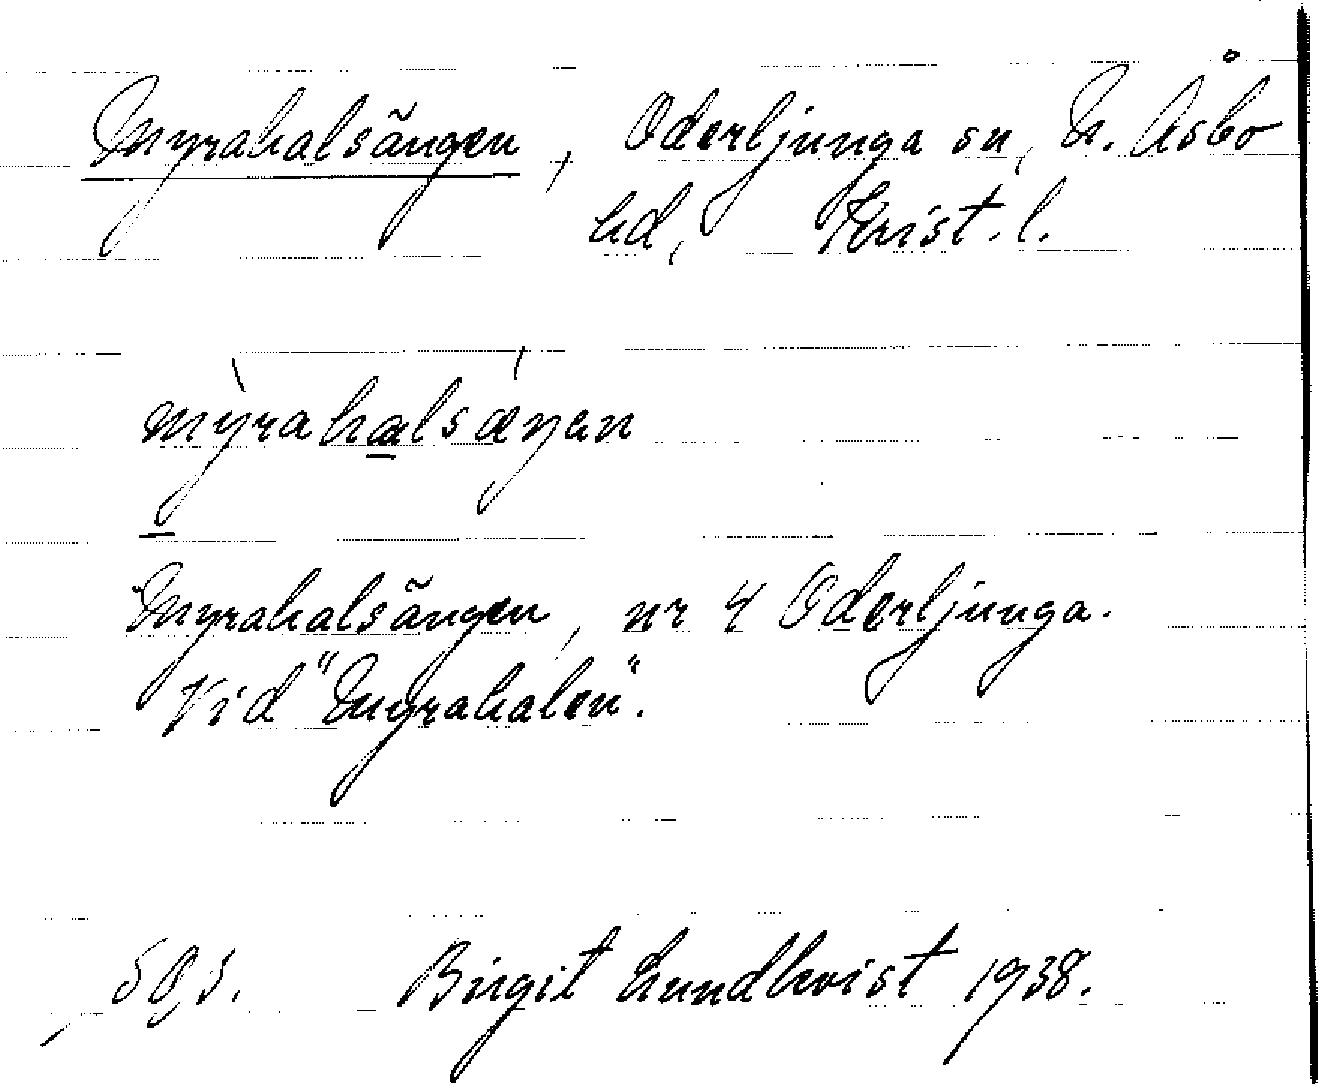 Myrahalsängen, Oderljunga sn, N. Åsbo
hd, Krist. l.
mỳrahalsáŋan
Myrahalsängen, nr 4 Oderljunga.
Vid "Myrahalen".
Birgit Lundkvist 1938.